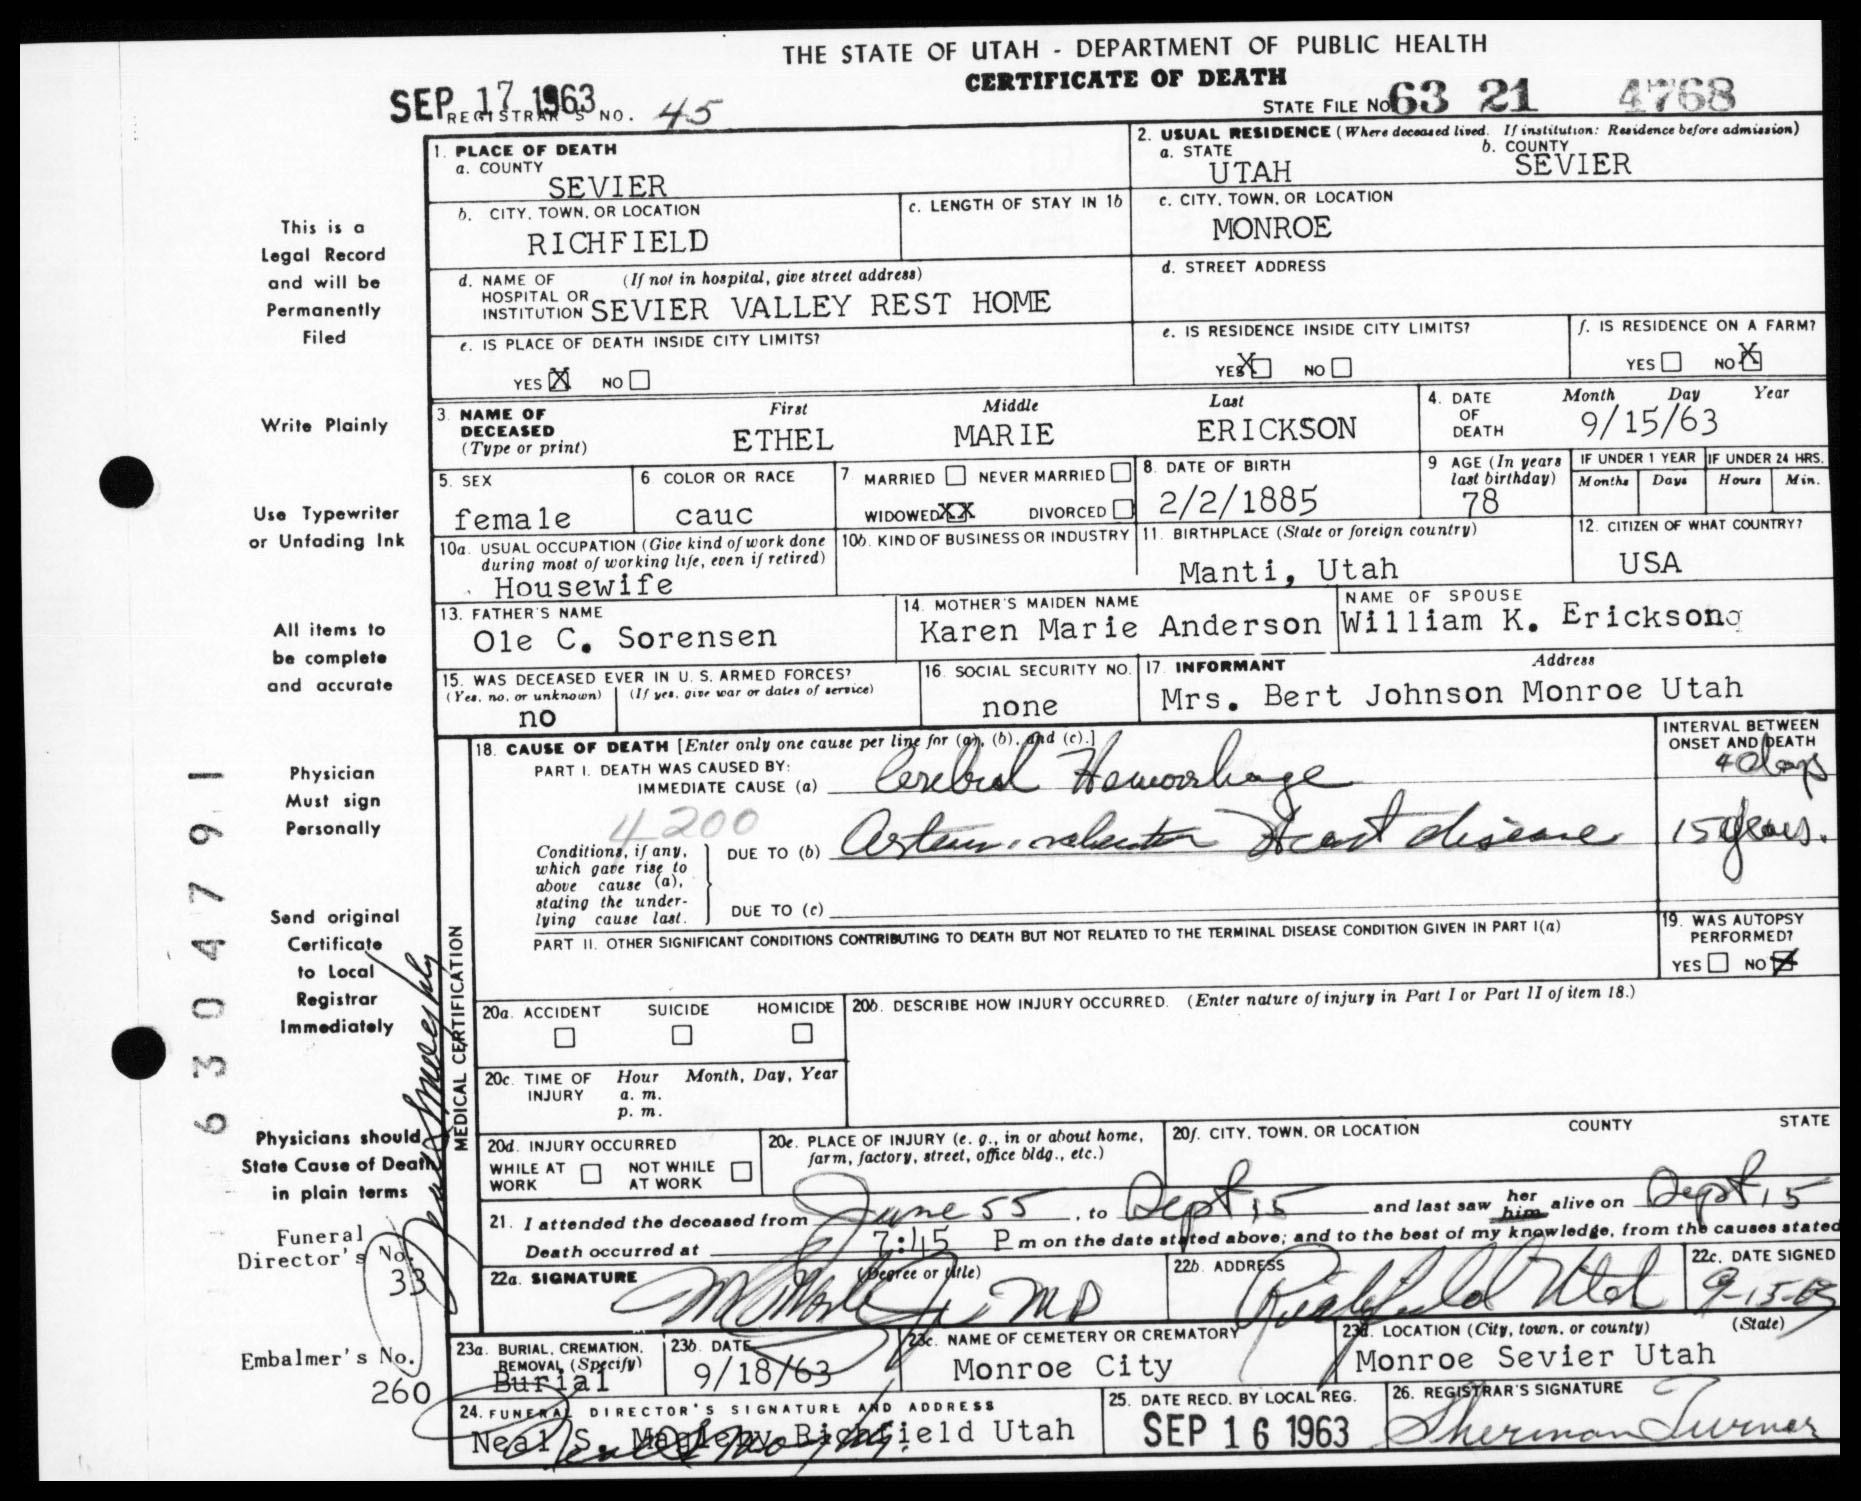 THE STATE OF UTAH - DEPARTMENT OF PUBLIC HEALTH
CERTIFICATE OF DEATH
SEP 17 1963
REGISTRAR'S NO. 45
STATE FILE NO. 63 21 4768
1. PLACE OF DEATH
a. COUNTY
SEVIER
2. USUAL RESIDENCE (Where deceased lived. If institution: Residence before admission)
a. STATE
UTAH
b. COUNTY
SEVIER
b. CITY, TOWN, OR LOCATION
RICHFIELD
c. LENGTH OF STAY IN 1b
c. CITY, TOWN, OR LOCATION
MONROE
d. NAME OF HOSPITAL OR INSTITUTION (If not in hospital, give street address)
SEVIER VALLEY REST HOME
d. STREET ADDRESS
e. IS PLACE OF DEATH INSIDE CITY LIMITS?
YES X NO
e. IS RESIDENCE INSIDE CITY LIMITS?
YES X NO
f. IS RESIDENCE ON A FARM?
YES NO X
3. NAME OF DECEASED (Type or print)
First Middle Last
ETHEL MARIE ERICKSON
4. DATE OF DEATH
Month Day Year
9/15/63
5. SEX
female
6 COLOR OR RACE
cauc
7 MARRIED NEVER MARRIED
WIDOWED XX DIVORCED
8. DATE OF BIRTH
2/2/1885
9 AGE (In years last birthday)
78
IF UNDER 1 YEAR
Months Days
IF UNDER 24 HRS.
Hours Min.
10a. USUAL OCCUPATION (Give kind of work done during most of working life, even if retired)
Housewife
10b. KIND OF BUSINESS OR INDUSTRY
11. BIRTHPLACE (State or foreign country)
Manti, Utah
12. CITIZEN OF WHAT COUNTRY?
USA
13. FATHER'S NAME
Ole C. Sorensen
14. MOTHER'S MAIDEN NAME
Karen Marie Anderson
NAME OF SPOUSE
William K. Erickson
15. WAS DECEASED EVER IN U. S. ARMED FORCES?
(Yes, no, or unknown) (If yes, give war or dates of service)
no
16. SOCIAL SECURITY NO.
none
17. INFORMANT Address
Mrs. Bert Johnson Monroe Utah
MEDICAL CERTIFICATION
18. CAUSE OF DEATH [Enter only one cause per line for (a), (b), and (c).]
PART I. DEATH WAS CAUSED BY:
IMMEDIATE CAUSE (a) Cerebral Hemorrhage
INTERVAL BETWEEN ONSET AND DEATH
4 days
4200
Conditions, if any, which gave rise to above cause (a), stating the underlying cause last.
DUE TO (b) Arteriosclerotic Heart disease
15 years.
DUE TO (c)
PART II. OTHER SIGNIFICANT CONDITIONS CONTRIBUTING TO DEATH BUT NOT RELATED TO THE TERMINAL DISEASE CONDITION GIVEN IN PART I(a)
19. WAS AUTOPSY PERFORMED?
YES NO X
20a. ACCIDENT SUICIDE HOMICIDE
20b. DESCRIBE HOW INJURY OCCURRED. (Enter nature of injury in Part I or Part II of item 18.)
20c. TIME OF INJURY
Hour Month, Day, Year
a. m.
p. m.
20d. INJURY OCCURRED
WHILE AT WORK NOT WHILE AT WORK
20e. PLACE OF INJURY (e. g., in or about home, farm, factory, street, office bldg., etc.)
20f. CITY, TOWN, OR LOCATION COUNTY STATE
21. I attended the deceased from June 55, to Sept 15 and last saw her him alive on Sept 15
Death occurred at 7:45 P m on the date stated above; and to the best of my knowledge, from the causes stated
22a. SIGNATURE (Degree or title)
MD
22b. ADDRESS
Richfield Utah
22c. DATE SIGNED
9-15-63
23a. BURIAL, CREMATION, REMOVAL (Specify)
Burial
23b. DATE
9/18/63
23c. NAME OF CEMETERY OR CREMATORY
Monroe City
23d. LOCATION (City, town, or county) (State)
Monroe Sevier Utah
24. FUNERAL DIRECTOR'S SIGNATURE AND ADDRESS
Neal S. Magleby Richfield Utah
25. DATE RECD. BY LOCAL REG.
SEP 16 1963
26. REGISTRAR'S SIGNATURE
Sherman Turner
This is a
Legal Record
and will be
Permanently
Filed
Write Plainly
Use Typewriter
or Unfading Ink
All items to
be complete
and accurate
Physician
Must sign
Personally
Send original
Certificate
to Local
Registrar
Immediately
Physicians should
State Cause of Death
in plain terms
Funeral
Director's No.
33
Embalmer's No.
260
6304791